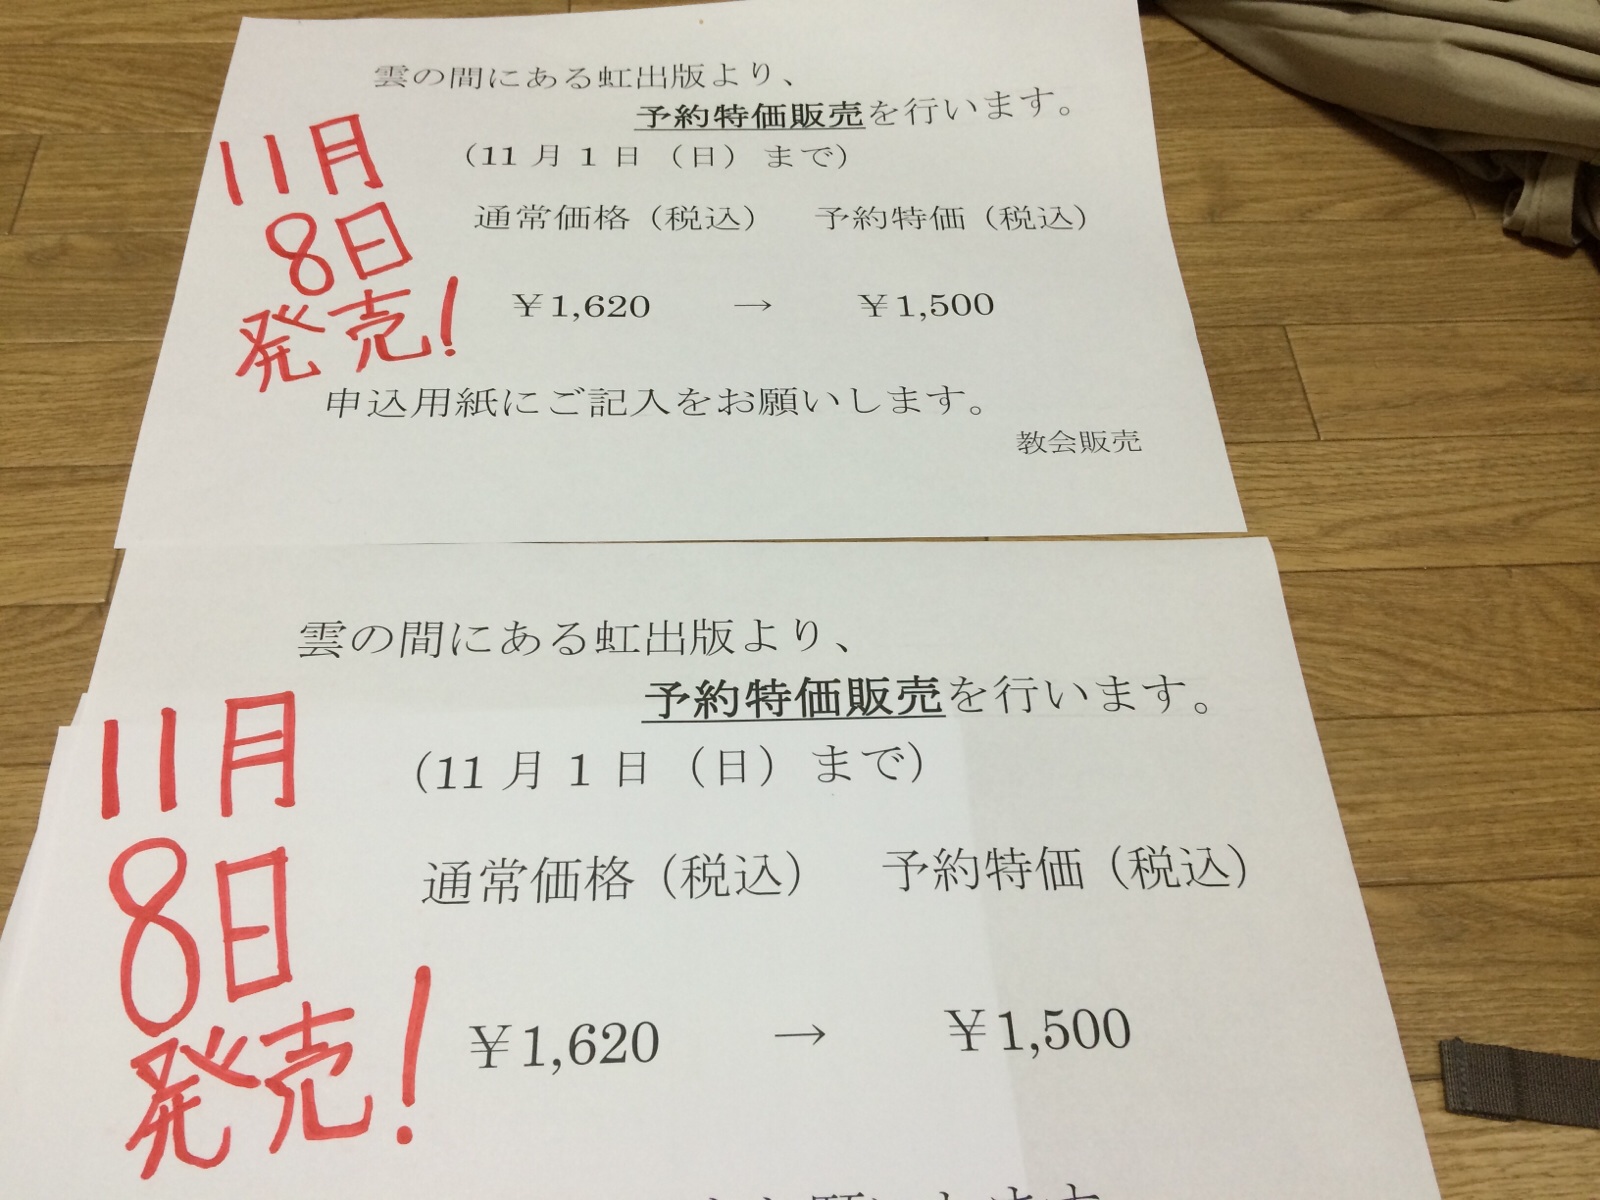 雲の間にある虹出版より、
予約特価販売を行います。
（11月1日（日）まで）
通常価格（税込）　予約特価（税込）
￥1,620　→　￥1,500
申込用紙にご記入をお願いします。
教会販売
11月
8日
発売！
雲の間にある虹出版より、
予約特価販売を行います。
（11月1日（日）まで）
通常価格（税込）　予約特価（税込）
￥1,620　→　￥1,500
11月
8日
発売！